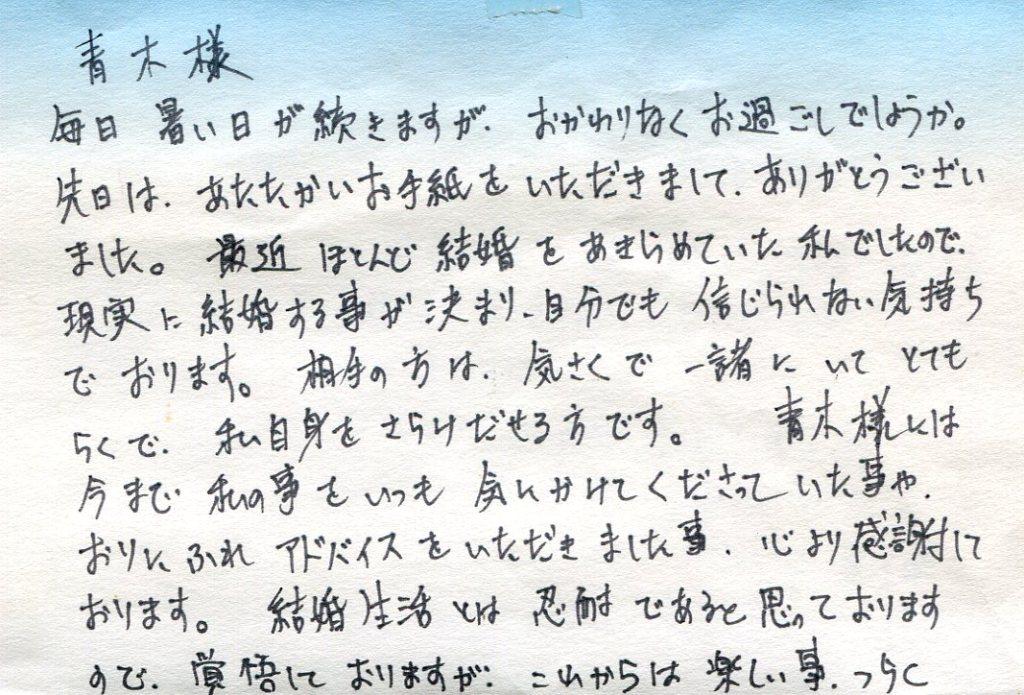 青木様
毎日 暑い日が続きますが、おかわりなくお過ごしでしょうか。
先日は、あたたかいお手紙をいただきまして、ありがとうござい
ました。 最近 ほとんど結婚をあきらめていた私でしたので、
現実に結婚する事が決まり、自分でも信じられない気持ち
でおります。 相手の方は、気さくで一諸にいてとても
らくで、私自身をさらけだせる方です。 青木様には
今まで私の事をいつも気にかけてくださっていた事や、
おりにふれアドバイスをいただきました事、心より感謝して
おります。 結婚生活とは忍耐であると思っております
ので、覚悟しておりますが、これからは楽しい事、つらく